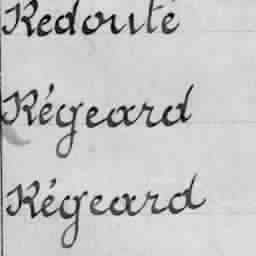 Redouté
Régeard
Régeard